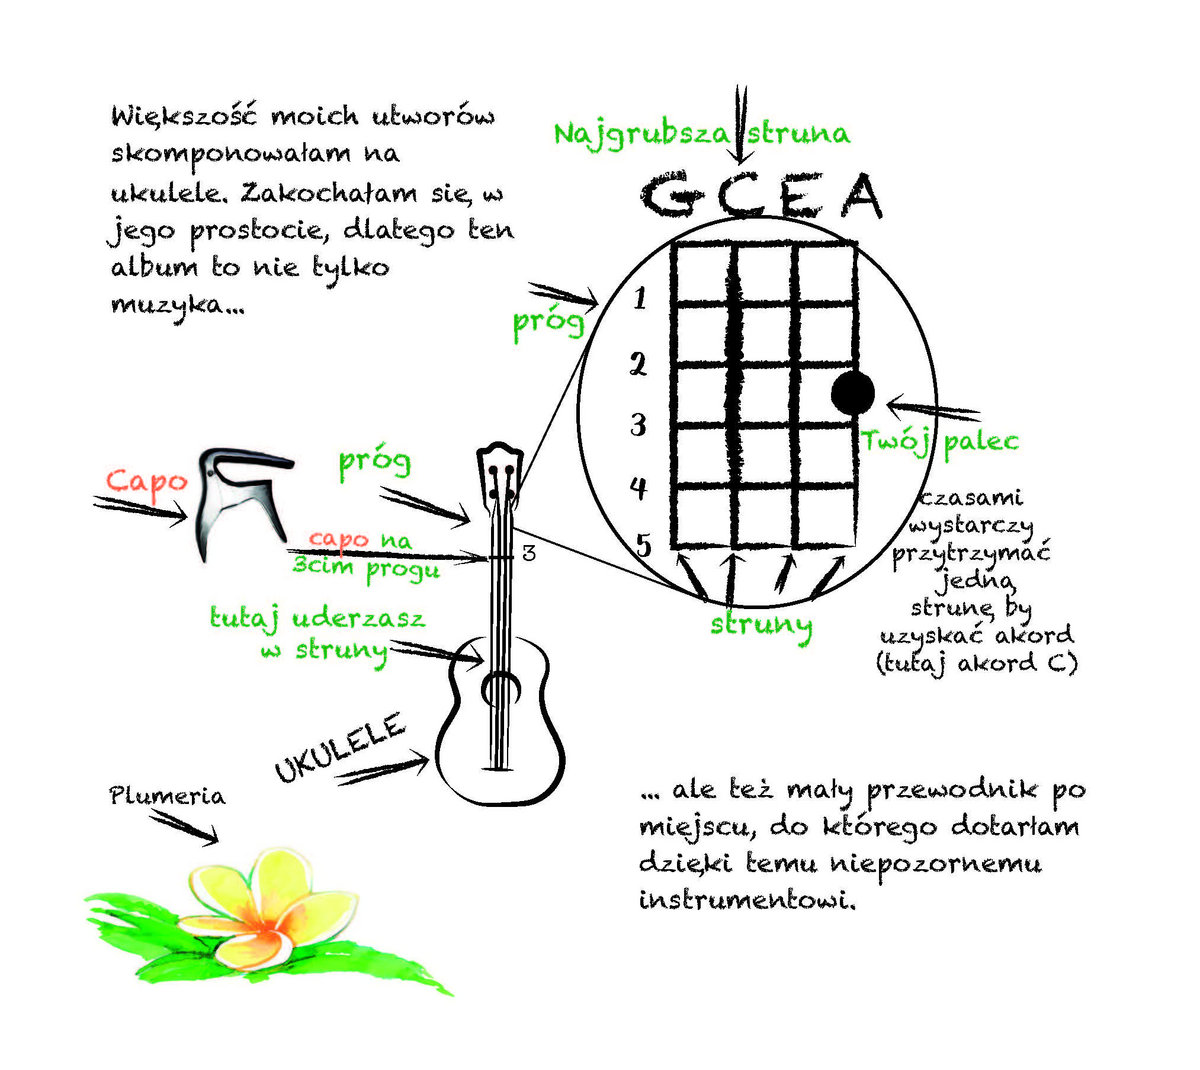 Większość moich utworów
skomponowałam na
ukulele. Zakochałam się, w
jego prostocie, dlatego ten
album to nie tylko
muzyka...
Najgrubsza struna
G C E A
próg
1
2
3
4
5
Twój palec
struny
czasami
wystarczy
przytrzymać
jedną
strunę, by
uzyskać akord
(tutaj akord C)
Capo
próg
capo na
3cim progu
3
tutaj uderzasz
w struny
UKULELE
Plumeria
... ale też mały przewodnik po
miejscu, do którego dotarłam
dzięki temu niepozornemu
instrumentowi.